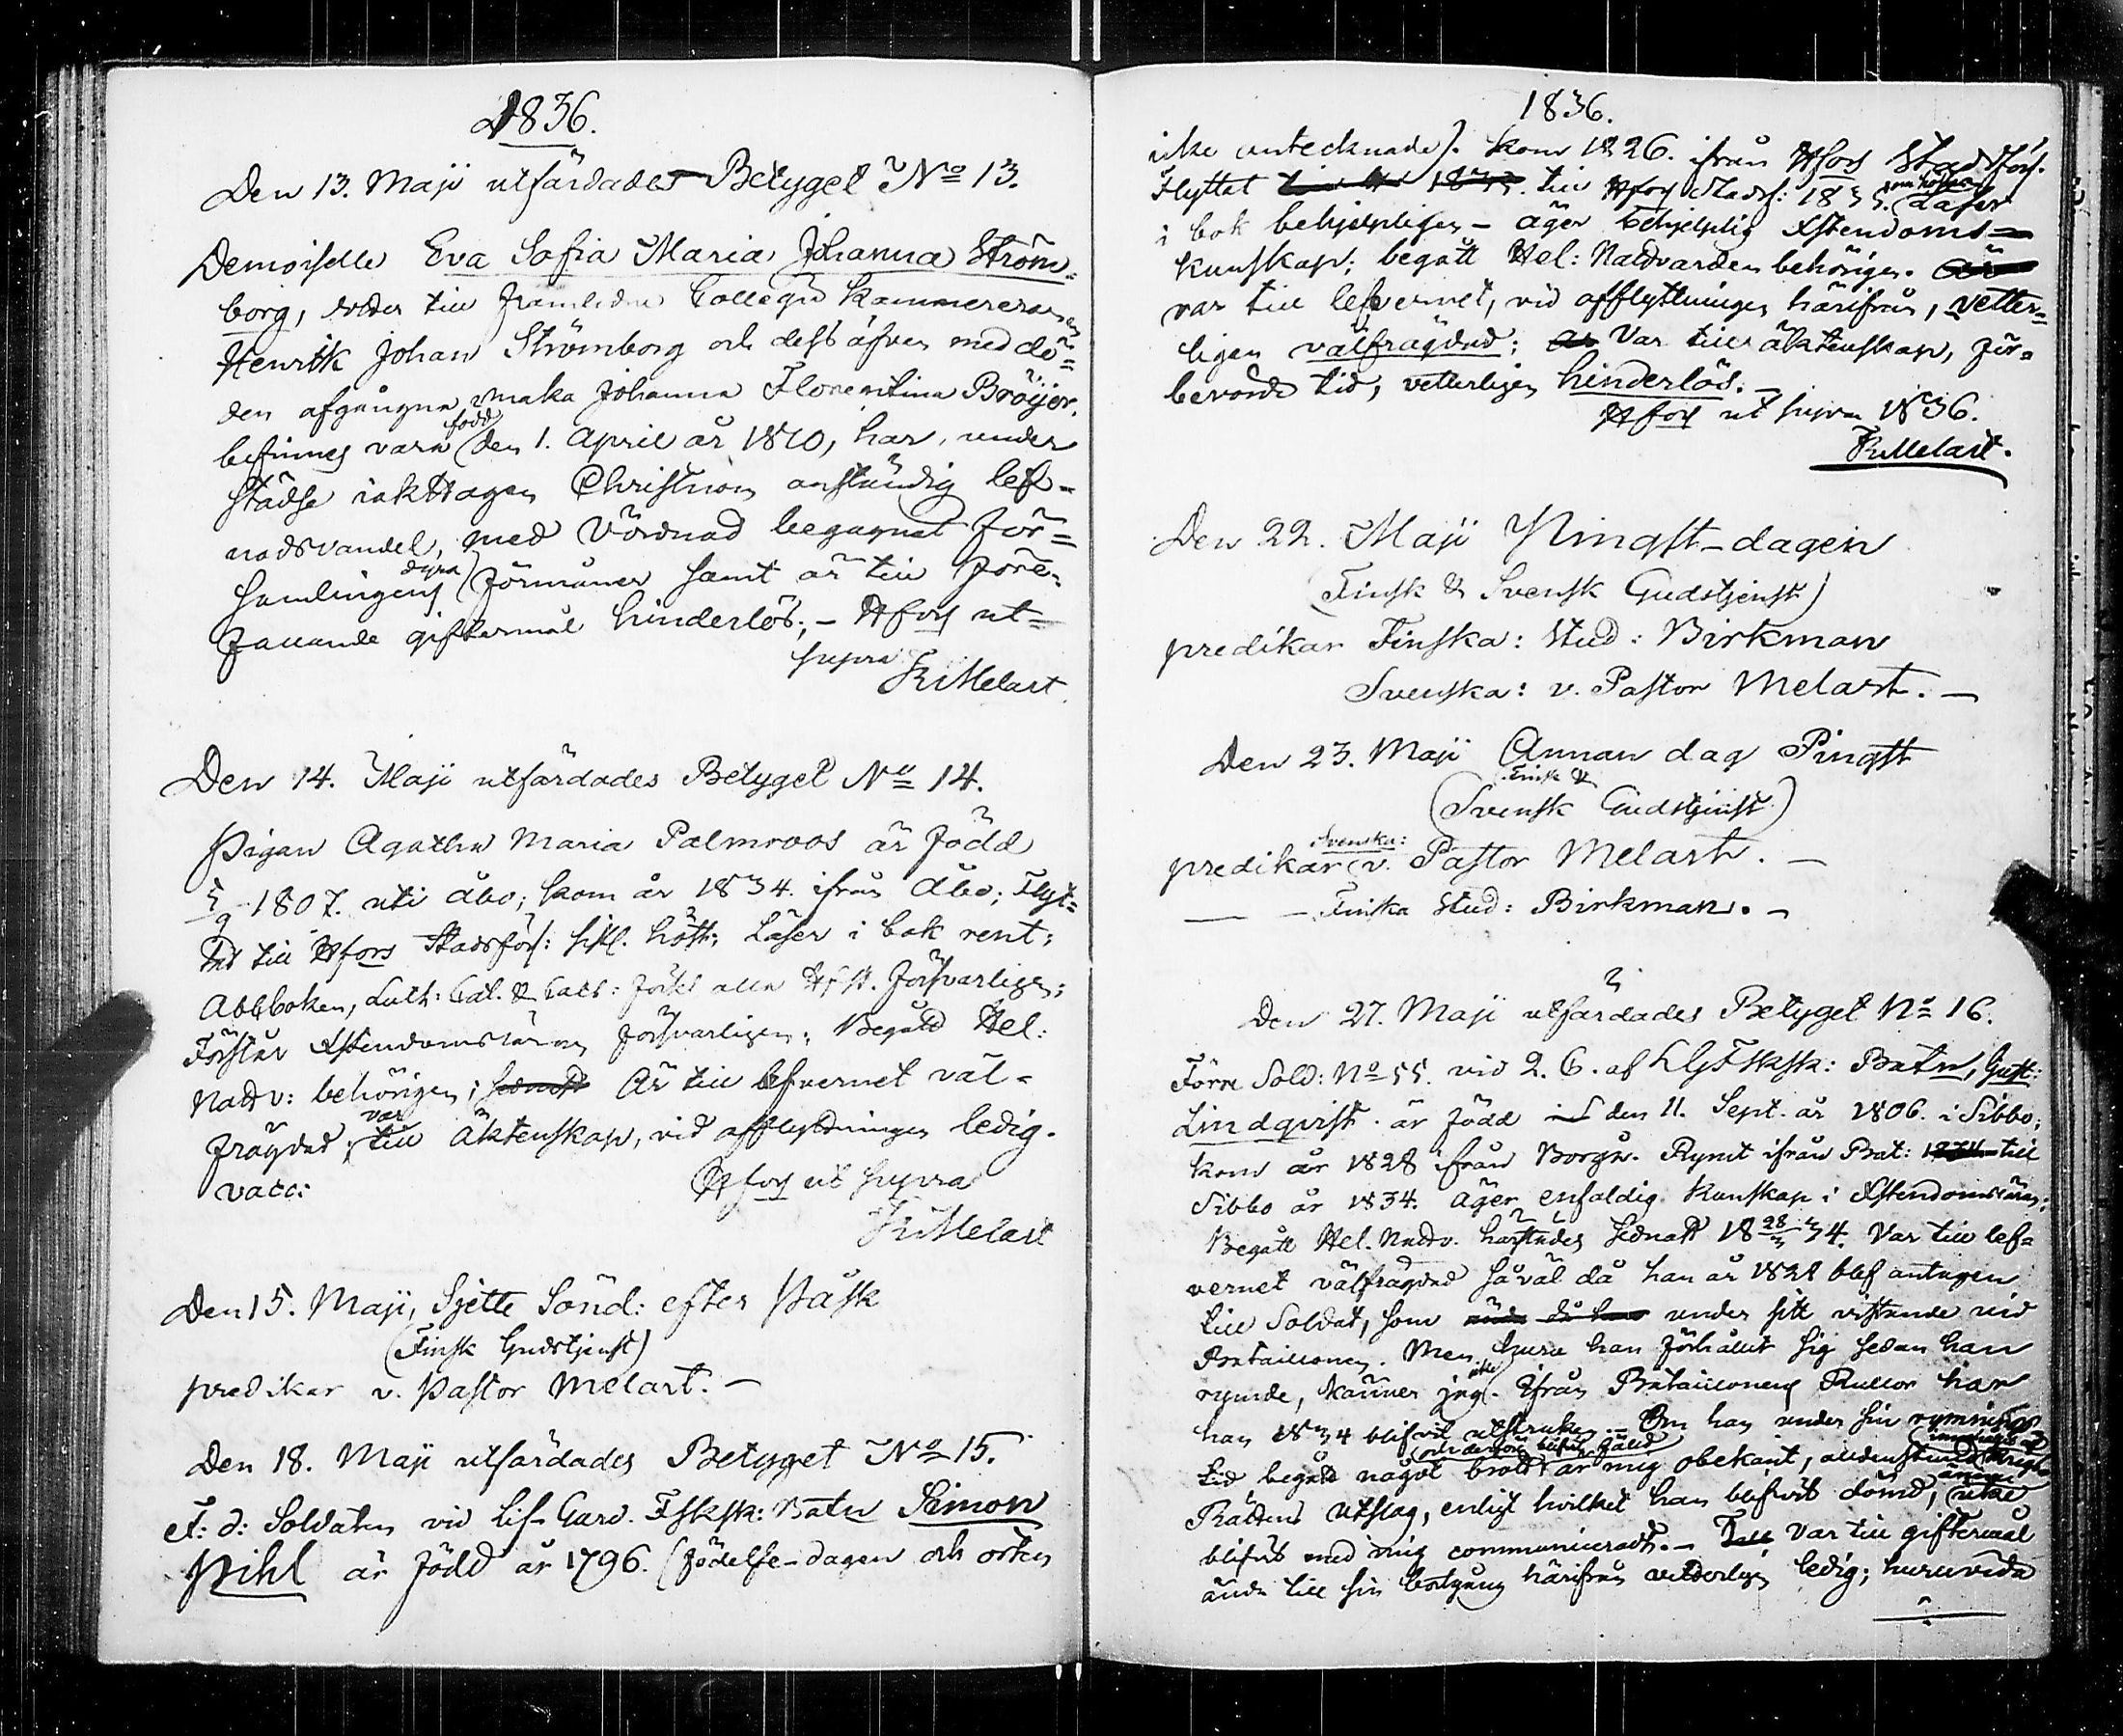 1836.
Den 13. Maji utfärdades Betyget No 13.
Demoiselle Eva Sofia Maria Johanna Ström-
borg, dotter till framledne Collegii Kammereraren
Henrik Johan Strömborg och dess äfven med dö-
den afgångna maka Johanna Florentina Bröijer,
befinnes vara född den 1. April år 1810, har, under
städse iakttagen Christnom anständig lef-
nadsvandel, med vördnad begagnat För-
samlingens dyra förmåner samt är till före-
fallande giftermål hinderlös; - Hfors ut
supra
FrMelart
Den 14. Maji utfärdades Betyget No 14.
Pigan Agatha Maria Palmroos är född
5/9 1807. uti Åbo; kom år 1834. ifrån Åbo; Flyt-
tat till Hfors Stadsförs: sistl. höst; Läser i bok rent;
Abbboken, Luth: Cat. & förkl alla försvarligen;
Förstår Xstendomsläran försvarligen; Begått Hel:
Nattv: behörigen; Är till lefvernet väl-
frägdad; var till äktenskap, vid afflyttningen ledig.
vacc:
Hfors ut supra
FrMelart
Den 15. Maji, Sjette Sönd: efter Påsk
(Finsk Gudstjenst)
predikar v. Pastor Melart. -
Den 18. Maji utfärdades Betyget No 15.
F: d: Soldaten vid Lif-Gard. Fsksk: Batn Simon
Pihl är född år 1796. (födelse-dagen och orten
1836.
icke antecknade). Kom 1826. ifrån Hfors Stadsförs.
Flyttat till Hfors Stadsf: 1833. läser
i bok behjelpligen - äger behjelplig Xstendoms-
kunskap; begått Hel: Nattvarden behörigen.
var till lefvernet, vid afflyttningen härifrån, vetter-
ligen välfrägdad; Var till äktenskap, för-
berörde tid, vetterligen hinderlös. -
Hfors ut supra 1836.
FrMelart.
Den 22. Maji Pingst-dagen
(Finsk & Svensk Gudstjenst)
predikar Finska: Stud: Birkman
Svenska: v. Pastor Melart. -
Den 23. Maji Annan dag Pingst
(Finsk & Svensk Gudstjenst)
predikar Svenska: v. Pastor Melart. -
— - Finska Stud: Birkman. -
Den 27. Maji utfärdades Betyget No 16.
Förre Sold: No 55. vid 2. C. af LGFsksk: Batn, Gust:
Lindqvist. är född den 11. Sept. år 1806. i Sibbo;
kom år 1828 ifrån Borgå. Rymt ifrån Bat: till
Sibbo år 1834. Äger enfaldig kunskap i Xstendomsläran;
Begått Hel. Nattv. härstädes sednast 18 28/3 34. Var till lef-
vernet välfrägdad såväl då han år 1828 blef antagen
till Soldat, som under sitt vistande vid
Bataillonen. Men huru han förhållit sig sedan han
rymde, känner jag icke. Ifrån Bataillonens Rullor har
han 1834 blifvit utstruken. - Om han under sin rymnings
tid begått något brott är mig obekant, alldenstund Krigs
Rättens Utslag, enligt hvilket han blifvit dömd, icke
blifvit med mig communicerat. - Var till giftermål
ända till sin bortgång härifrån vetterligen ledig; huruvida